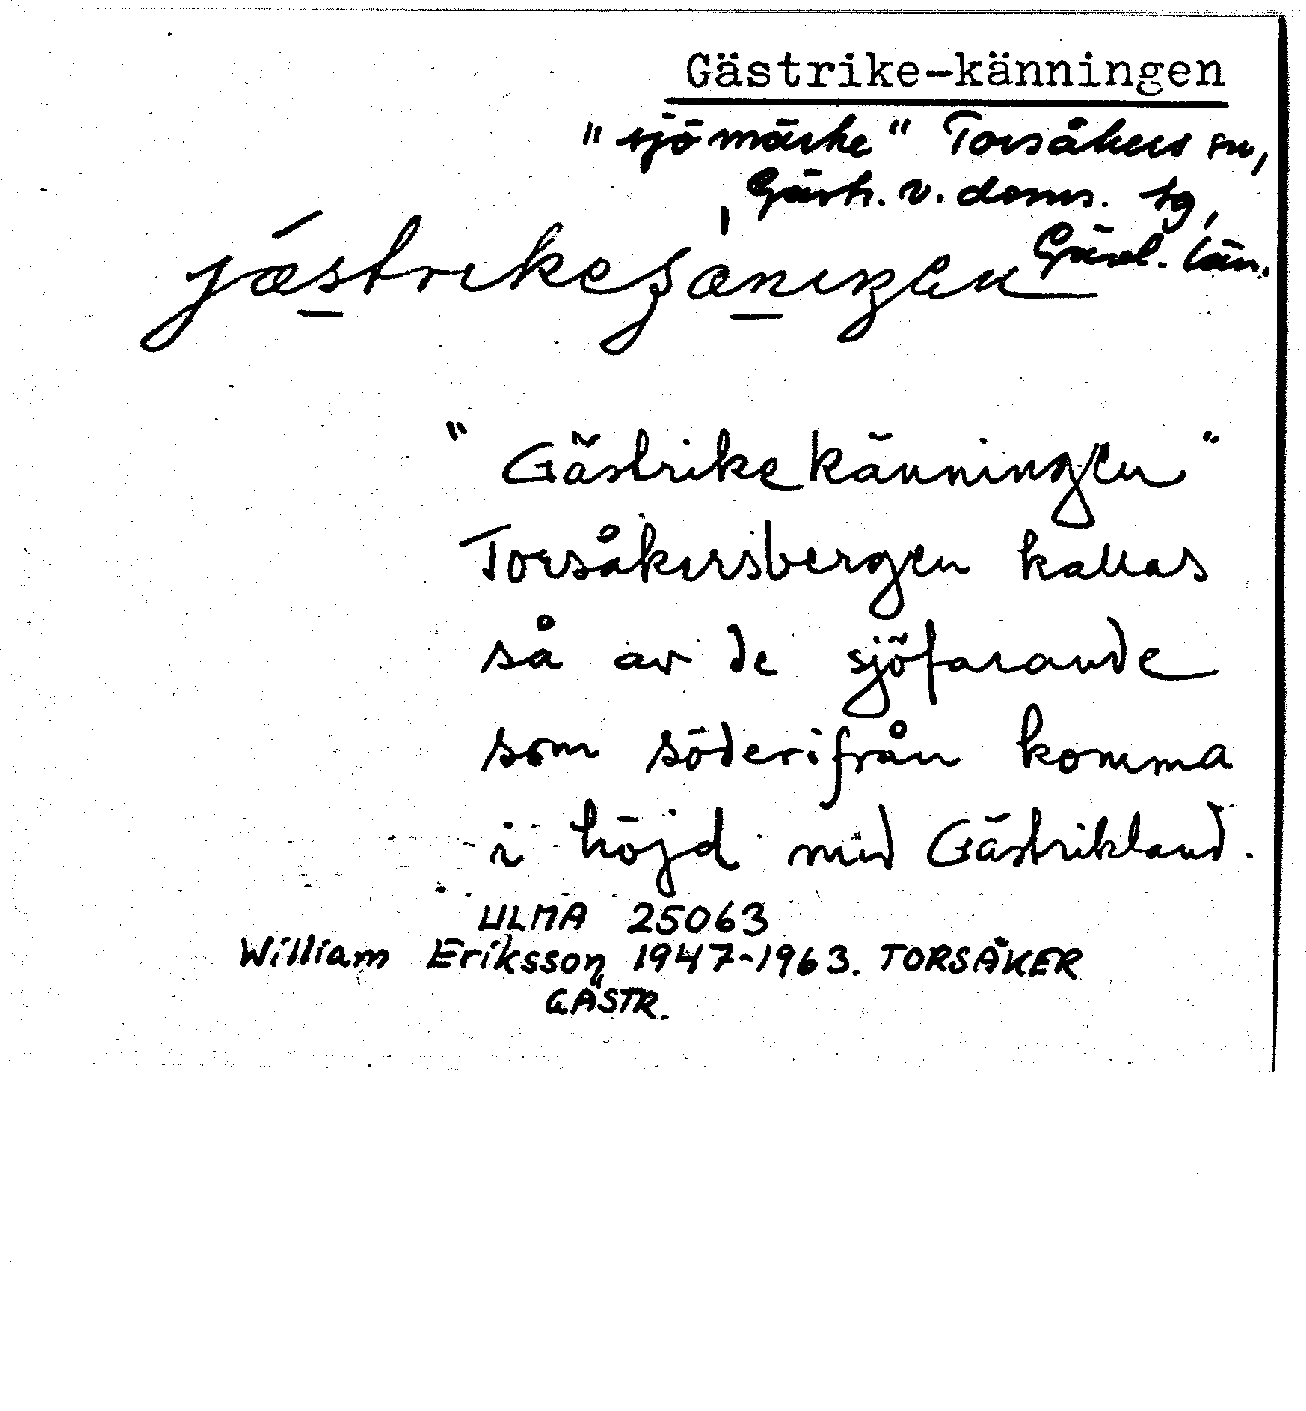 Gästrike-känningen
"sjömärke" Torsåkers sn,
Gästr. v. doms. tg,
Gävl. län.
"Gästrikekänningen"
Torsåkersbergen kallas
så av de sjöfarande
som söderifrån komma
i höjd med Gästrikland.
ULMA 25063
William Eriksson 1947-1963. TORSÅKER
GÄSTR.